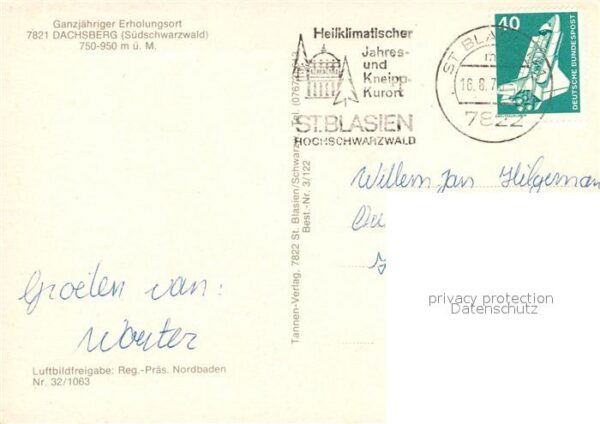 Ganzjähriger Erholungsort
7821 DACHSBERG (Südschwarzwald)
750-950 m ü. M.
Heilklimatischer
Jahres-
und
Kneipp-
Kurort
ST.BLASIEN
HOCHSCHWARZWALD
ST. BLA
16.8.7
7822
40
DEUTSCHE BUNDESPOST
Tannen-Verlag, 7822 St. Blasien/Schwarzw.
Best.-Nr. 3/122
Willem Jan Hilgeman
privacy protection
Datenschutz
Groeten van:
Wouter
Luftbildfreigabe: Reg.-Präs. Nordbaden
Nr. 32/1063